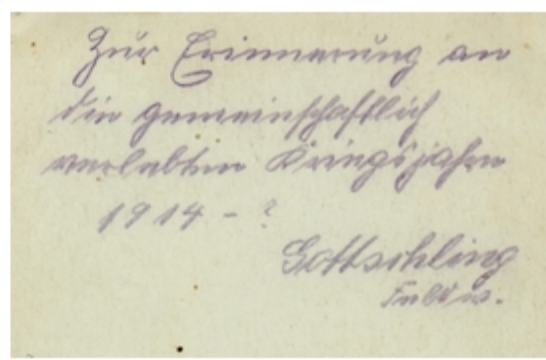 Zur Erinnerung an
die gemeinschaftlich
verlebten Kriegsjahre
1914 - ?
Gottschling
Feldw.